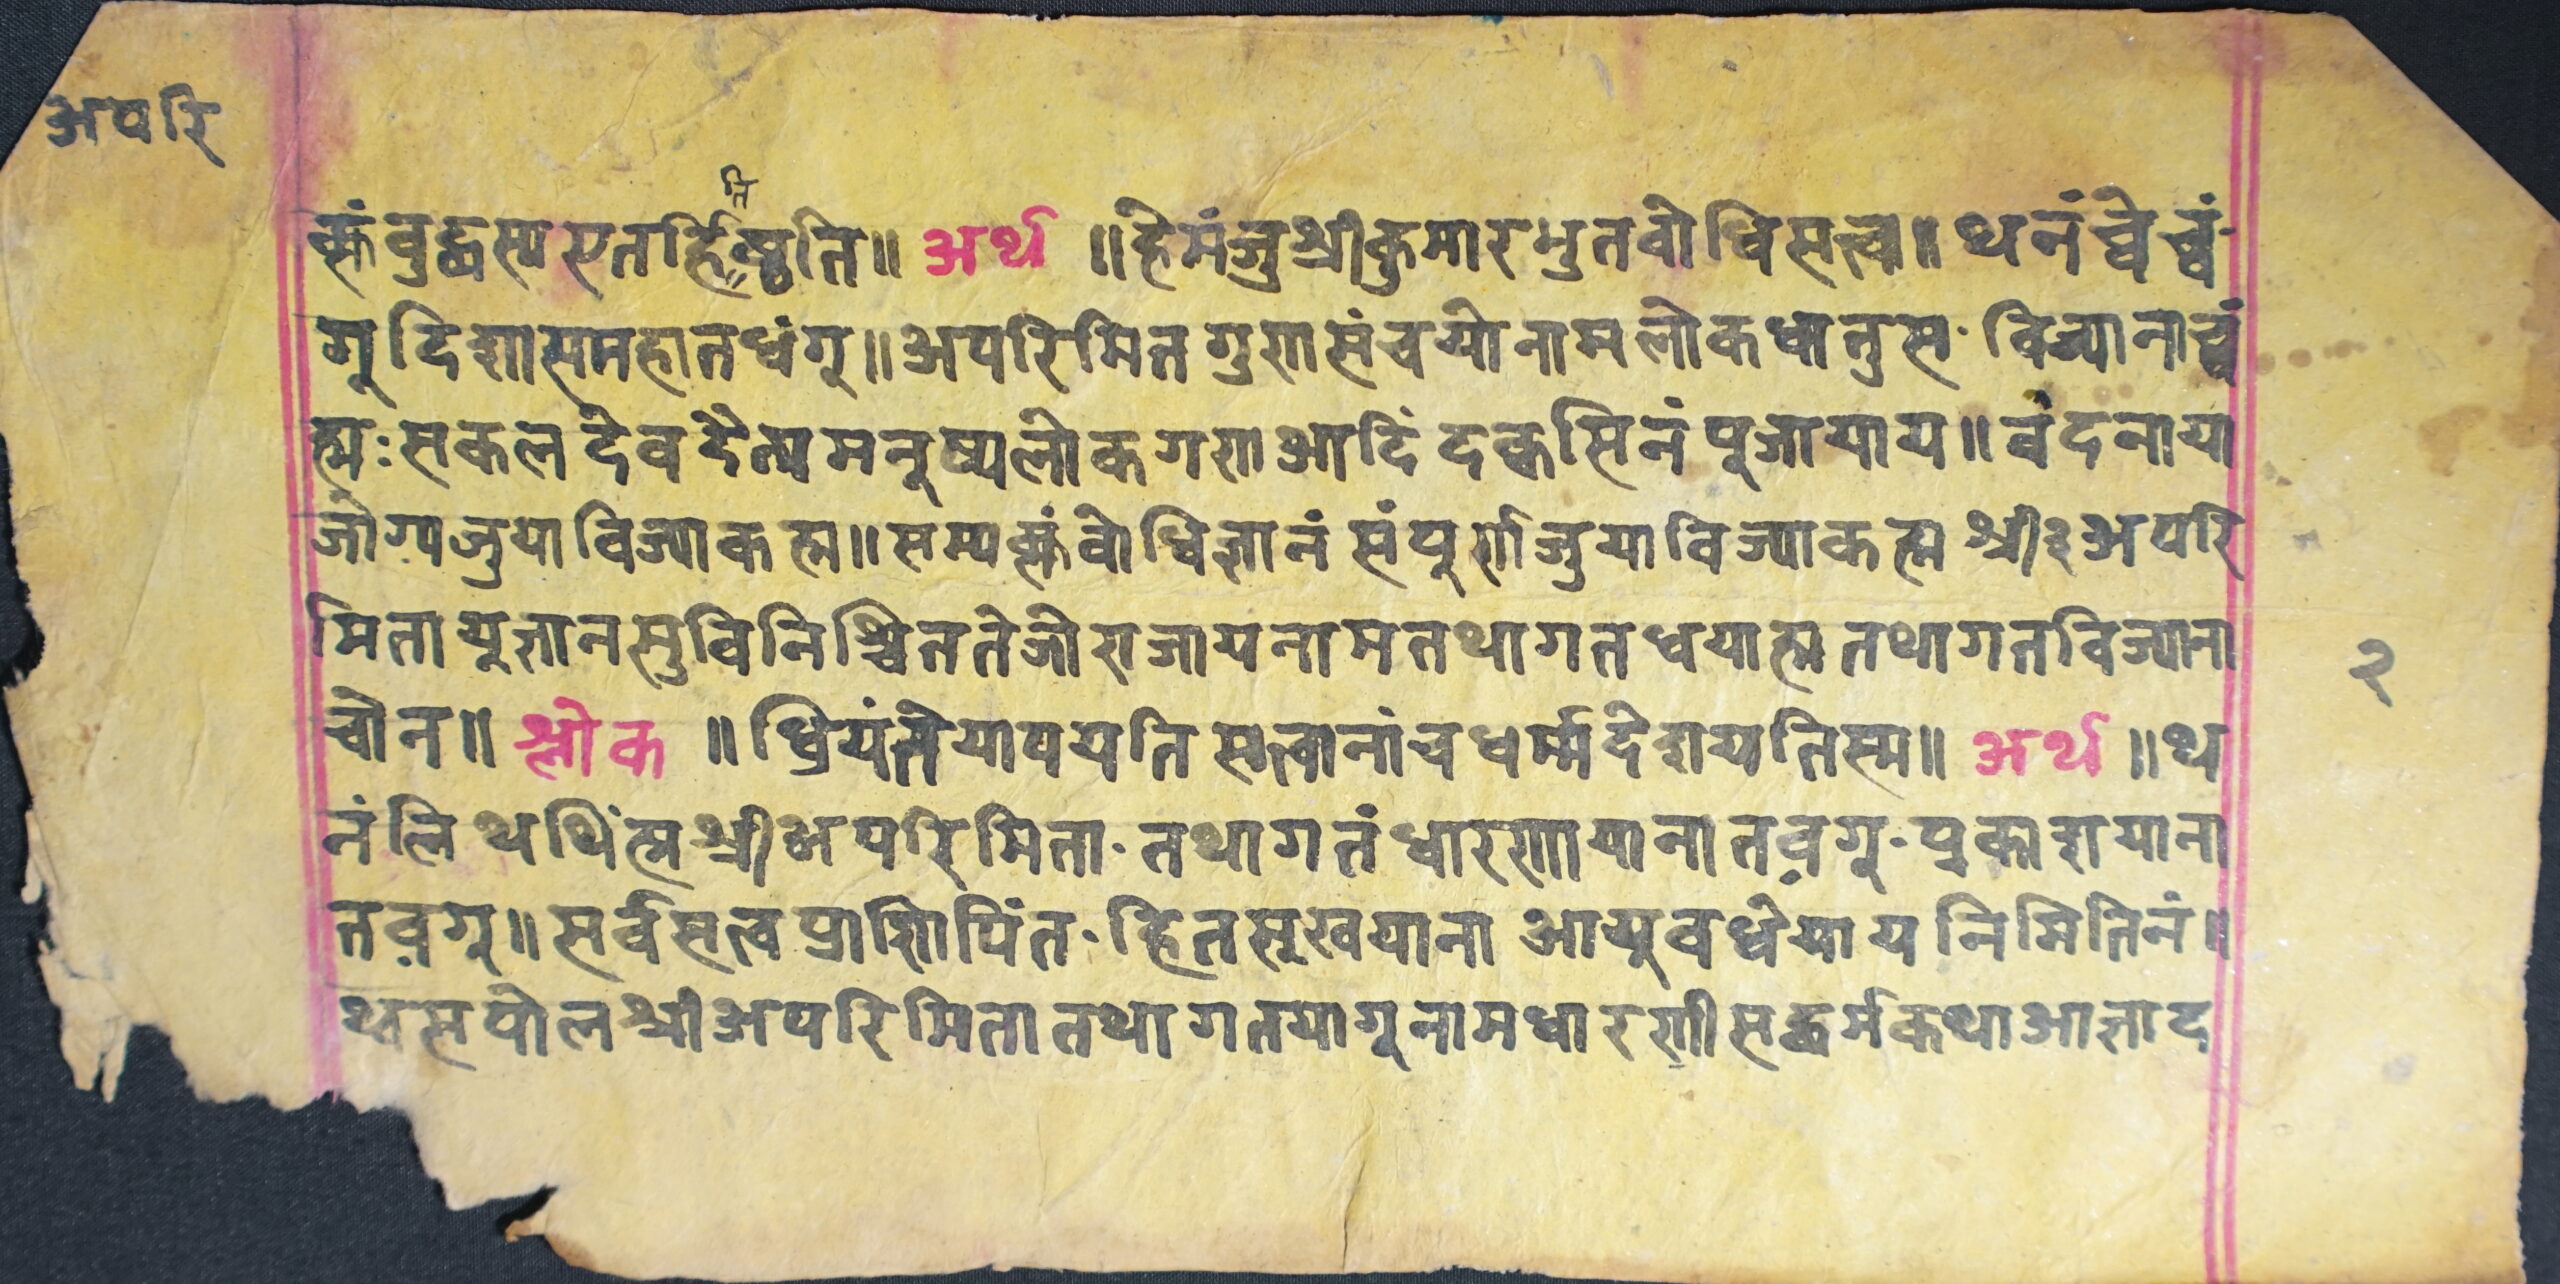 अपरि
क्संबुद्धस्य एतर्हितिष्ठति॥ अर्थ ॥हेमंजुश्रीकुमारभुतबोधिसत्त्व॥थनंच्वेच्वं
गुदिशासमहातधंगु॥अपरिमितगुणसंचयोनामलोकधातुस·विज्यानाच्वं
ह्मः सकलदेवदैत्यमनुष्यलोकगणआदिंदक्वसिनंपूजायाय॥वंदनाया
जोग्यजुयाविज्याकह्म॥सम्यक्संबोधिज्ञानंसंपुर्णजुयाविज्याकह्मश्री३अपरि
मितायूज्ञानसुविनिश्चिततेजोराजायनामतथागतधयाह्मतथागतविज्याना
चोन॥ श्लोक ॥ध्रियंतेयापयतिसत्वानांचधर्म्मदेशयतिस्म॥ अर्थ ॥थ
नंलिथथिंह्मश्रीअपरिमिता·तथागतंधारणायानातव़गु·प्रकाशयाना
तव़गु॥सर्वसत्वप्राणिपिंत·हितसूखयानाआयूवर्धेयायनिमितिनं॥
थ्वसपोलश्रीअपरिमितातथागतयागूनामधारणीसद्धर्मकथाआज्ञाद
२